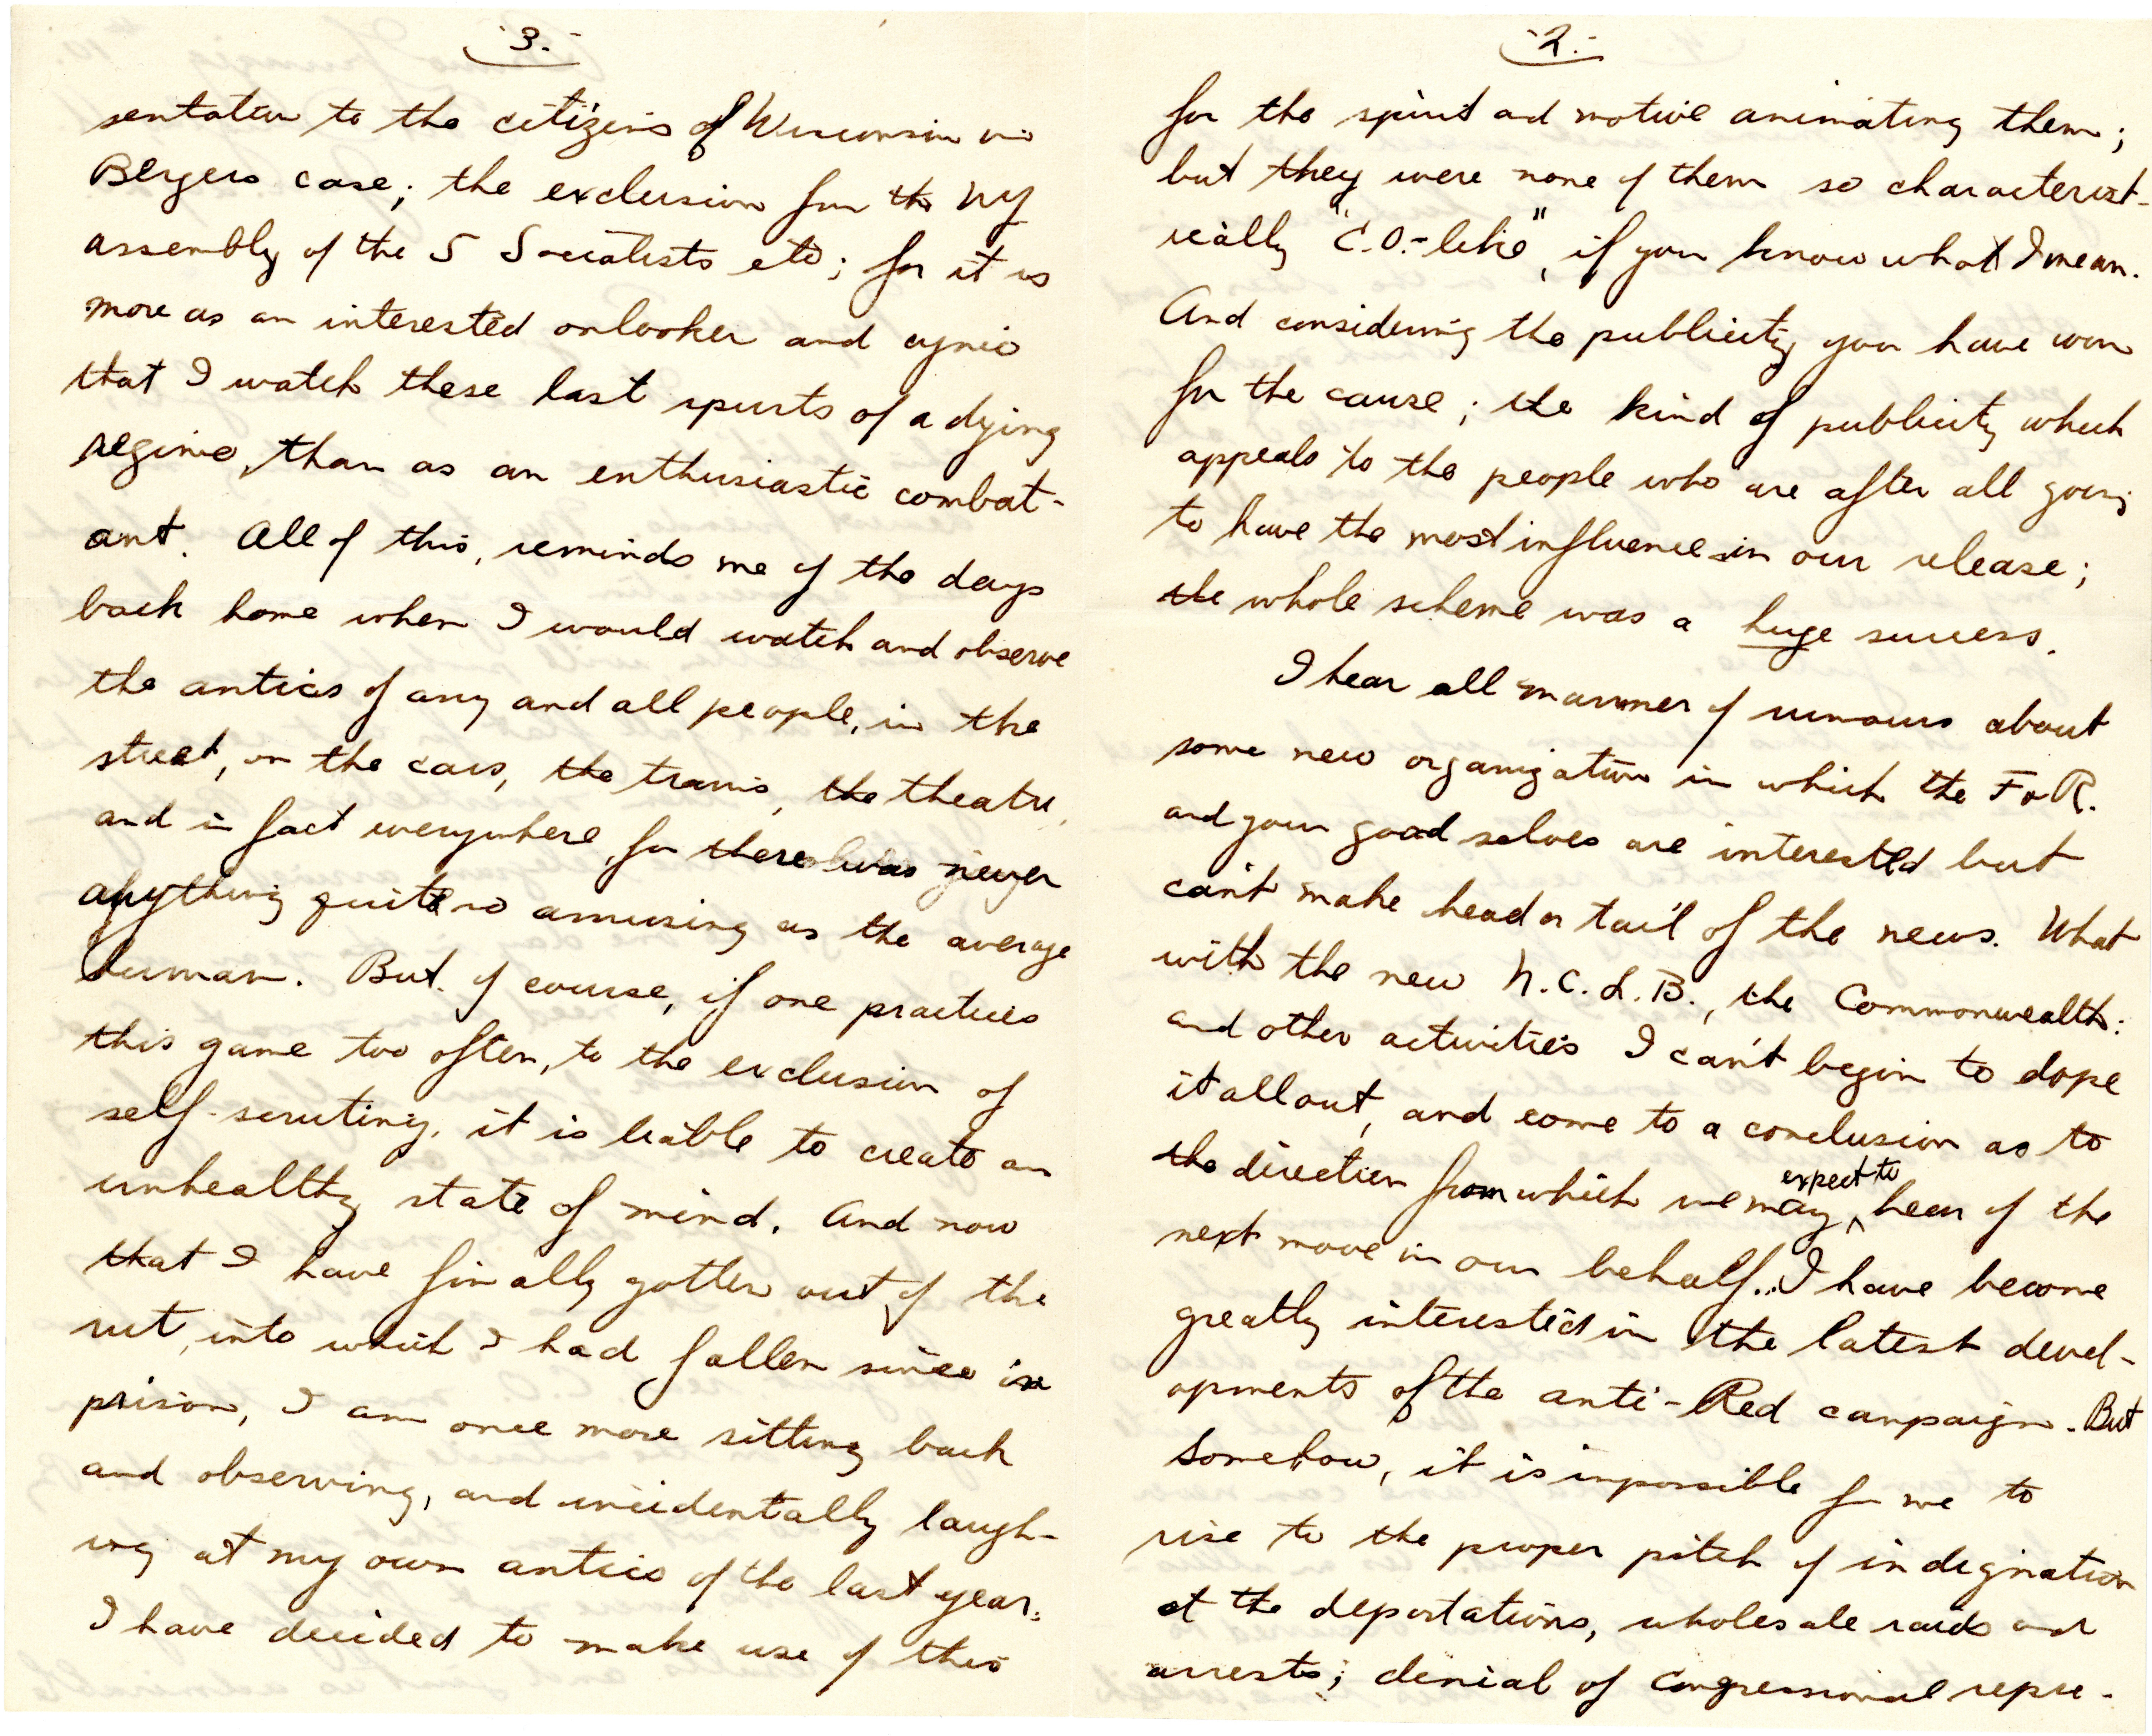 -2.-
for the spirit and motive animating them;
but they were none of them so characterist-
ically "C.O.-like", if you know what I mean.
And considering the publicity you have won
for the cause; the kind of publicity which
appeals to the people who are after all going
to have the most influence in our release;
the whole scheme was a huge success.
I hear all manner of rumours about
some new organization in which the F o R.
and your good selves are interested but
can't make head or tail of the news. What
with the new N.C.L.B., the Commonwealth:
and other activities I can't begin to dope
it all out, and come to a conclusion as to
the direction from which we may expect to hear of the
next move in our behalf... I have become
greatly interested in the latest devel-
opments of the anti-Red campaign. But
somehow, it is impossible for me to
rise to the proper pitch of indignation
at the deportations, wholesale raids and
arrests; denial of congressional repre-
-3.-
sentation to the citizens of Wisconsin in
Bergers case; the exclusion from the NY
assembly of the 5 Socialists etc; for it is
more as an interested onlooker and cynic
that I watch these last spurts of a dying
regime, than as an enthusiastic combat-
ant. All of this, reminds me of the days
back home when I would watch and observe
the antics of any and all people, in the
street, on the cars, the trains, the theatre,
and in fact everywhere, for there was never
anything quite so amusing as the average
human. But of course, if one practices
this game too often, to the exclusion of
self-scrutiny, it is liable to create an
unhealthy state of mind. And now
that I have finally gotten out of the
rut, into which I had fallen since in
prison, I am once more sitting back
and observing, and incidentally laugh-
ing at my own antics of the last year.
I have decided to make use of this